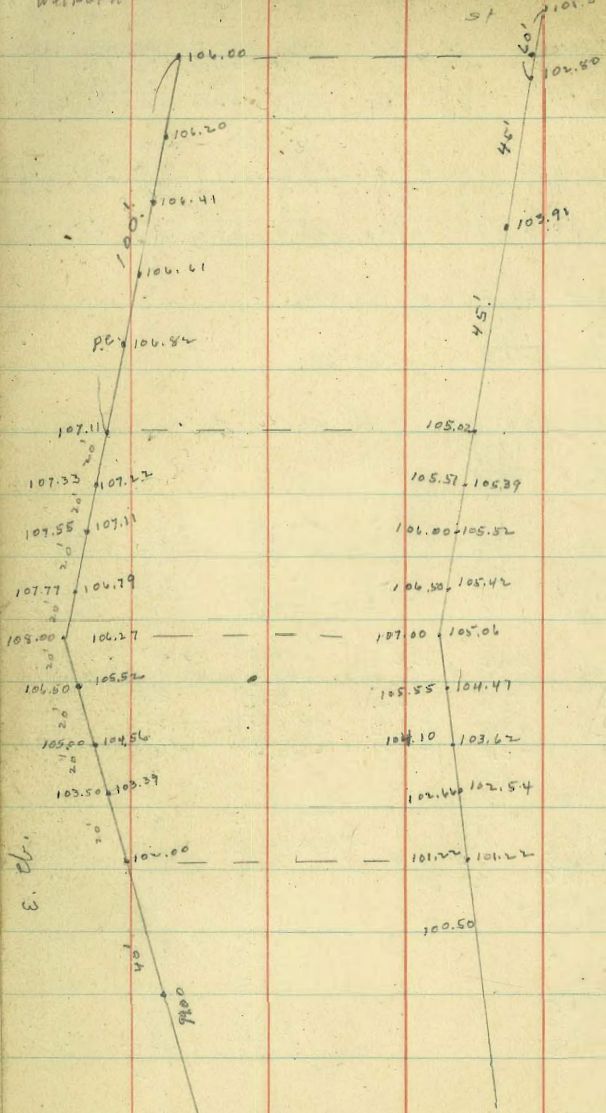 st 101.5
106.00
30'
102.80
106.20
45'
106.41
103.91
100'
106.61
45'
P.C. 106.82
107.11 105.02
20'
107.33 107.22 105.51 105.39
20'
107.55 107.11 106.00 105.52
20'
107.77 106.79 106.50 105.42
20'
108.00 106.27 107.00 105.06
20'
106.50 105.52 105.55 104.47
20'
105.00 104.56 104.10 103.62
20'
103.50 103.39 102.66 102.54
20'
102.00 101.22 101.22
100.50
40'
99.00